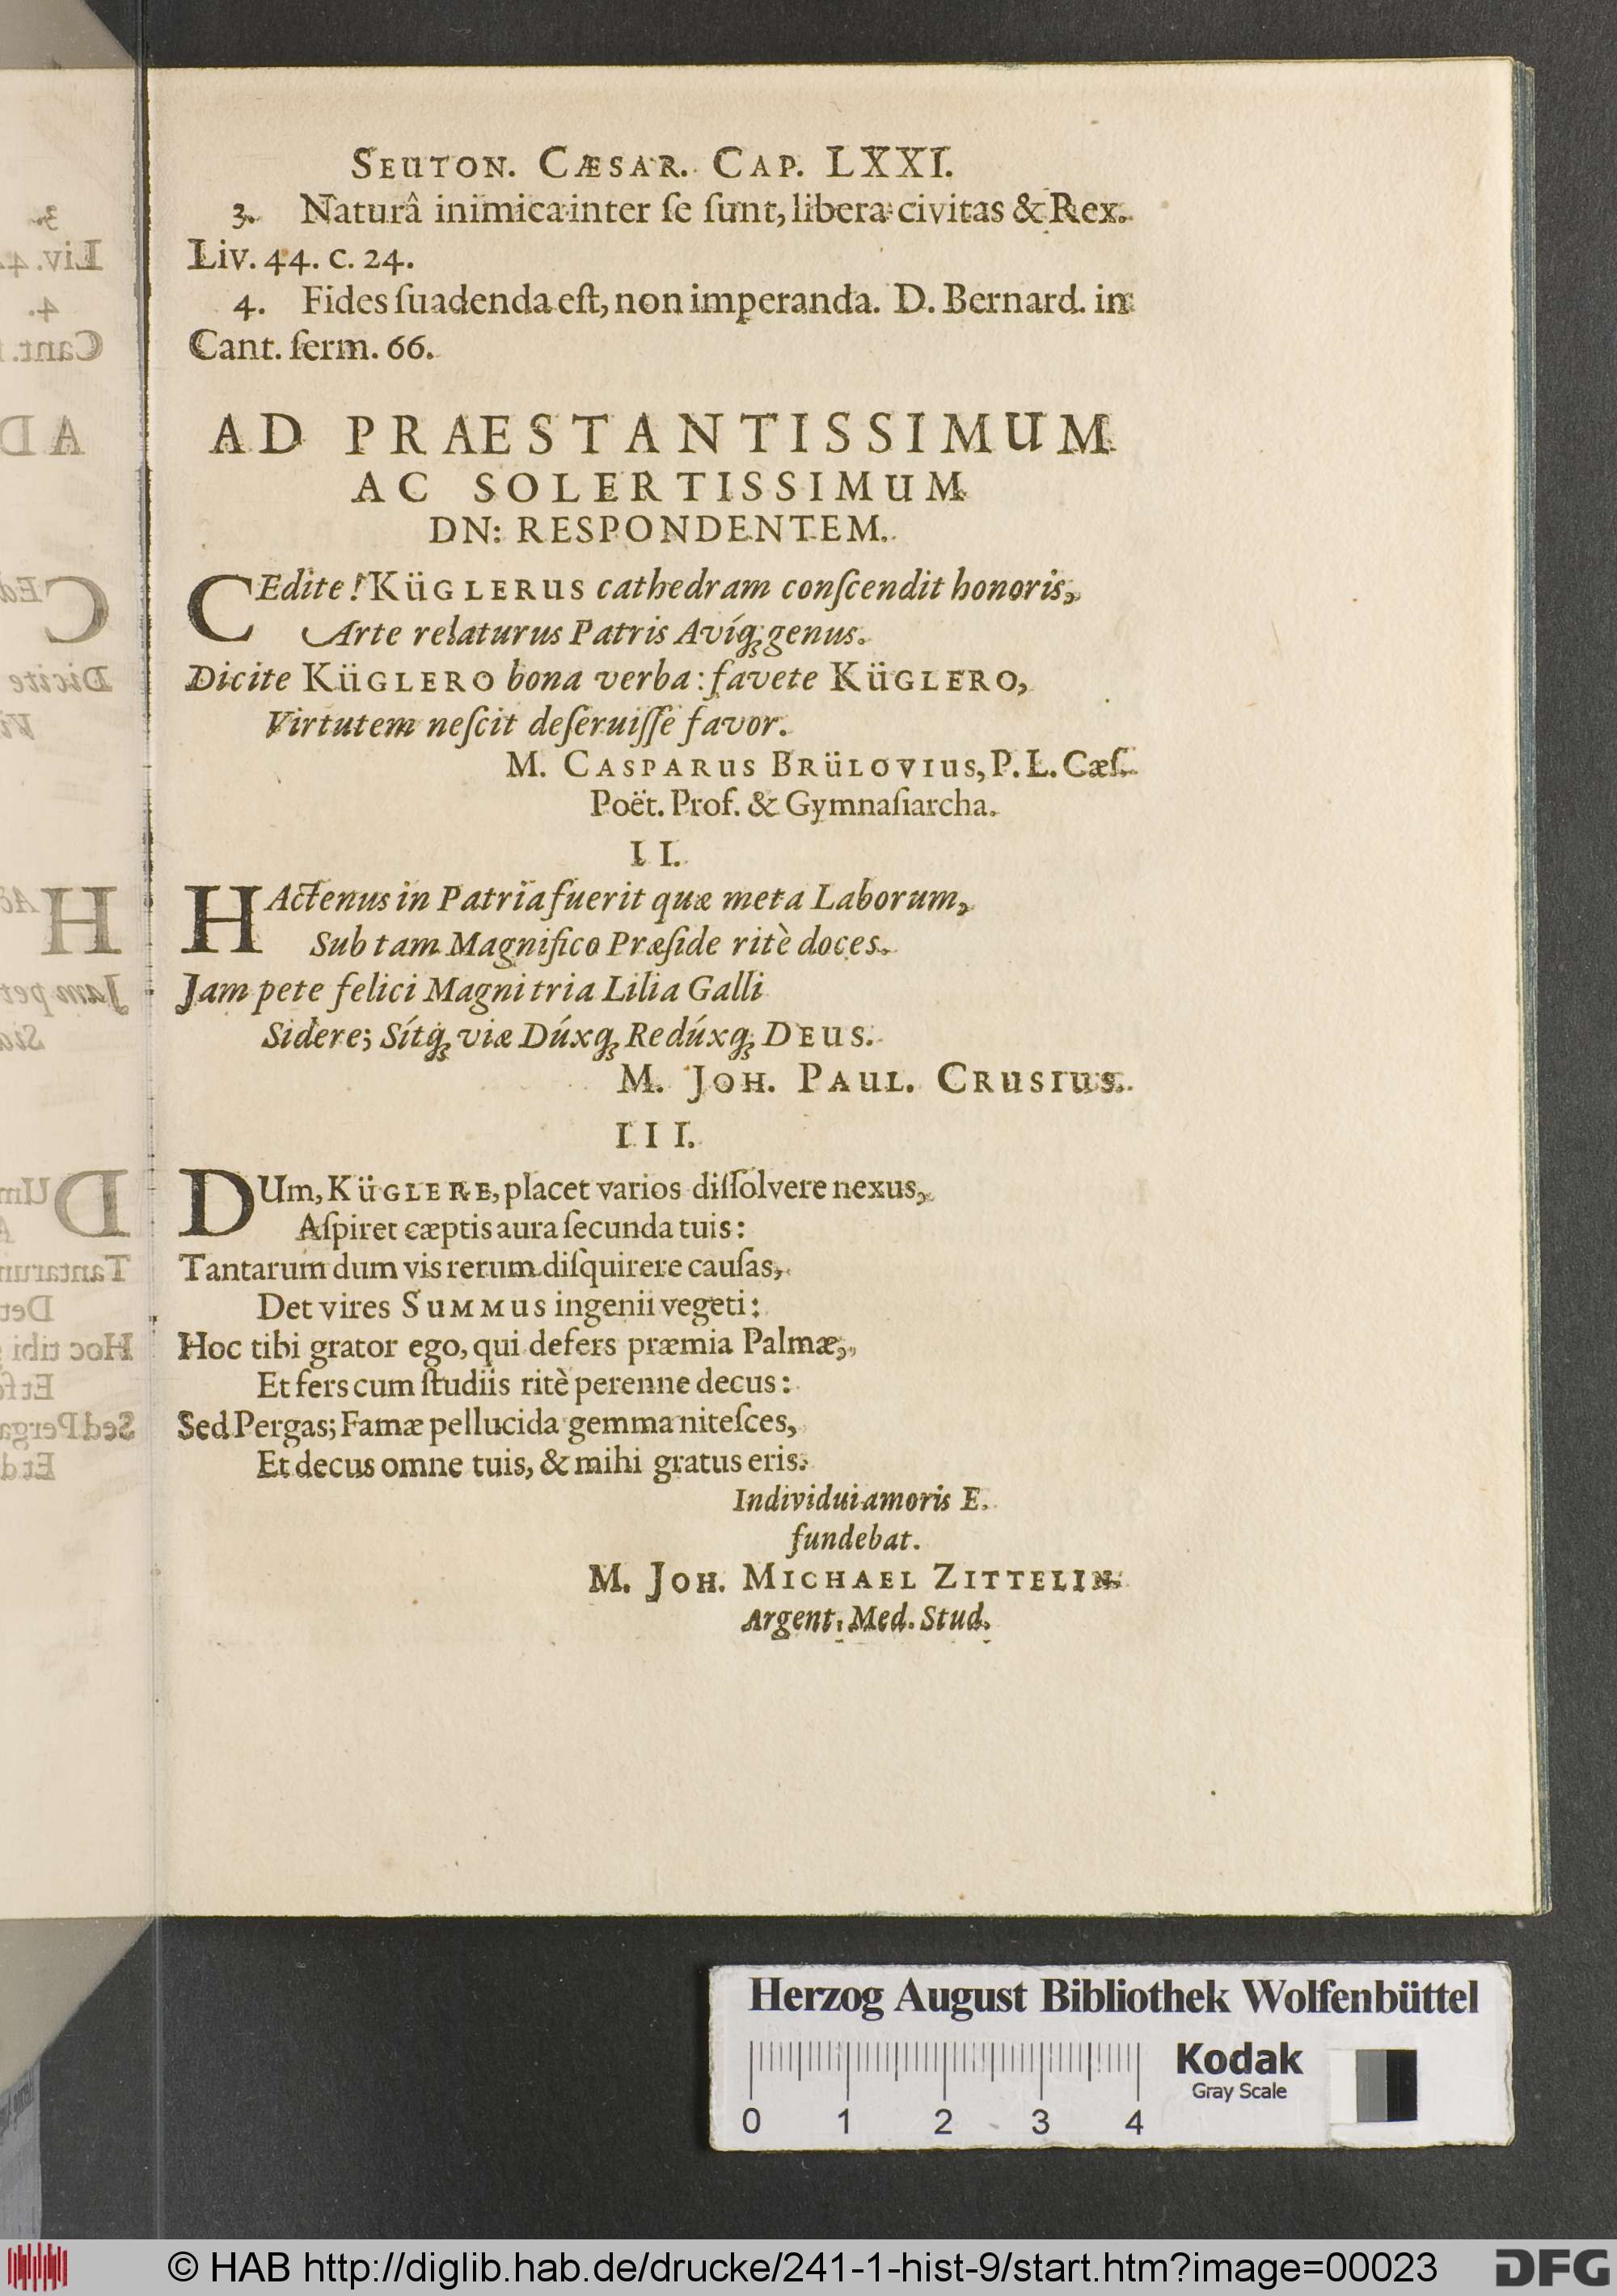 SEUTON. CÆSAR. CAP. LXXI.
3. Naturâ inimica inter ſe ſunt, libera civitas & Rex.
Liv. 44. c. 24.
4. Fides ſuadenda eſt, non imperanda. D. Bernard. in
Cant. ſerm. 66.
AD PRAESTANTISSIMUM
AC SOLERTISSIMUM
DN: RESPONDENTEM.
CEdite! KüGLERUS cathedram conſcendit honoris,
Arte relaturus Patris Avíq; genus.
Dicite KüGLERO bona verba: favete KüGLERO,
Virtutem neſcit deſeruiſſe favor.
M. CASPARUS BRüLOVIUS, P. L. Cæſ.
Poët. Prof. & Gymnaſiarcha.
II.
HActenus in Patria fuerit quæ meta Laborum,
Sub tam Magnifico Præſide ritè doces.
Jam pete felici Magni tria Lilia Galli
Sidere; Sítq; viæ Dúxq; Redúxq; DEUS.
M. JOH. PAUL. CRUSIUS.
III.
DUm, KüGLERE, placet varios diſſolvere nexus,
Aſpiret cæptis aura ſecunda tuis:
Tantarum dum vis rerum diſquirere cauſas,
Det vires SUMMUS ingenii vegeti:
Hoc tibi grator ego, qui defers præmia Palmæ,
Et fers cum ſtudiis ritè perenne decus:
Sed Pergas; Famæ pellucida gemma niteſces,
Et decus omne tuis, & mihi gratus eris.
Individui amoris E.
fundebat.
M. JOH. MICHAEL ZITTELIN.
Argent. Med. Stud.
Herzog August Bibliothek Wolfenbüttel
Kodak
Gray Scale
0 1 2 3 4
© HAB http://diglib.hab.de/drucke/241-1-hist-9/start.htm?image=00023
DFG